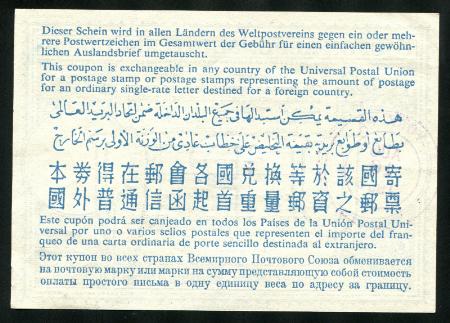 Dieser Schein wird in allen Ländern des Weltpostvereins gegen ein oder meh-
rere Postwertzeichen im Gesamtwert der Gebühr für einen einfachen gewöhn-
lichen Auslandsbrief umgetauscht.
This coupon is exchangeable in any country of the Universal Postal Union
for a postage stamp or postage stamps representing the amount of postage
for an ordinary single-rate letter destined for a foreign country.
هذه القسيمة يمكن استبدالها في جميع البلدان الداخلة ضمن اتحاد البريد العالمى
بطابع او طوابع بريد بقيمة التخليص على خطاب عادى من الوزنة الاولى برسم الخارج
本券得在郵會各國兌換等於該國寄
國外普通信函起首重量郵資之郵票
Este cupón podrá ser canjeado en todos los Países de la Unión Postal Uni-
versal por uno o varios sellos postales que representen el importe del fran-
queo de una carta ordinaria de porte sencillo destinada al extranjero.
Этот купон во всех странах Всемирного Почтового Союза обменивается
на почтовую марку или марки на сумму представляющую собой стоимость
оплаты простого письма в одну единицу веса по адресу за границу.